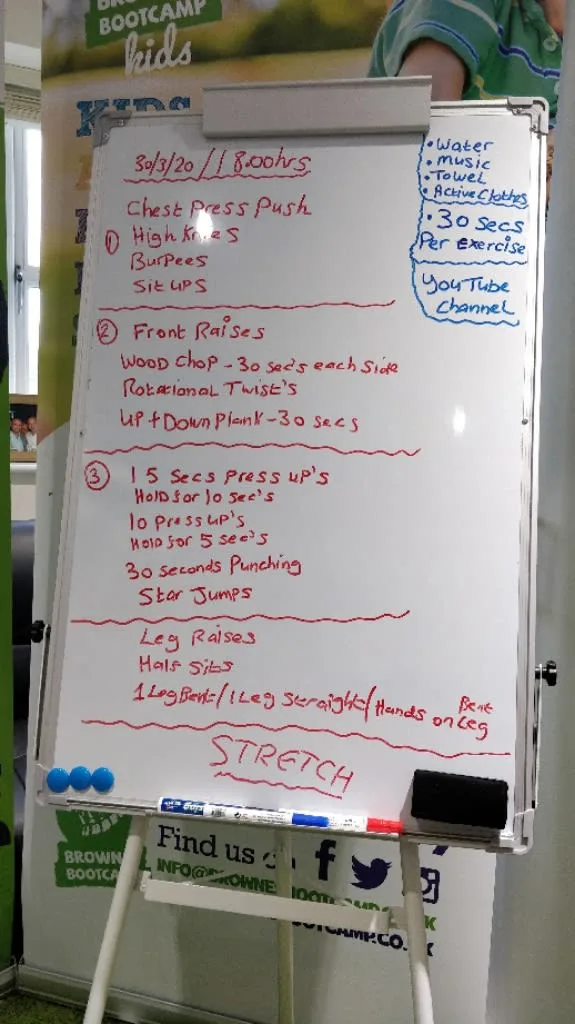 BOOTCAMP
kids
KIDS
30/3/20 / 18.00hrs
Chest Press Push
① High Knees
Burpees
Sit ups
② Front Raises
Wood Chop - 30 sec's each side
Rotational Twist's
Up + Down Plank - 30 secs
③ 15 Secs Press up's
Hold for 10 sec's
10 Press up's
Hold for 5 sec's
30 seconds Punching
Star Jumps
Leg Raises
Half Sits
1 Leg Bent / 1 Leg Straight / Hands on Bent Leg
STRETCH
• Water
• Music
• Towel
• Active Clothes
• 30 secs
Per Exercise
YouTube
Channel
Find us
BROWNE
BOOTCA